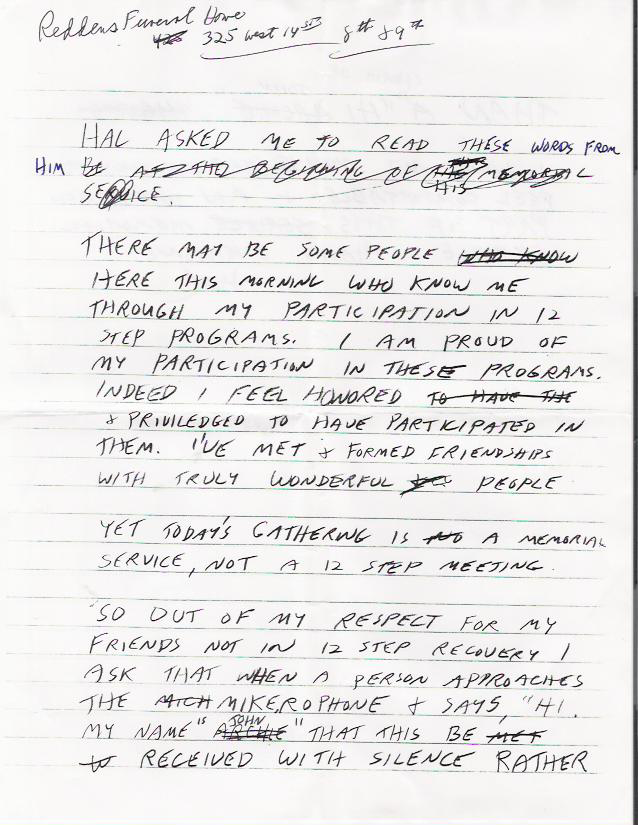 Reddens Funeral Home
325 west 14 st 8th & 9th
HAL ASKED ME TO READ THESE WORDS FROM
HIM BE AT THE BEGINNING OF THIS HIS MEMORIAL
SERVICE.
THERE MAY BE SOME PEOPLE WHO KNOW
HERE THIS MORNING WHO KNOW ME
THROUGH MY PARTICIPATION IN 12
STEP PROGRAMS. I AM PROUD OF
MY PARTICIPATION IN THESE PROGRAMS.
INDEED I FEEL HONORED TO HAVE THE
& PRIVILEDGED TO HAVE PARTICIPATED IN
THEM. I'VE MET & FORMED FRIENDSHIPS
WITH TRULY WONDERFUL PEOPLE
YET TODAY'S GATHERING IS NO A MEMORIAL
SERVICE, NOT A 12 STEP MEETING.
SO OUT OF MY RESPECT FOR MY
FRIENDS NOT IN 12 STEP RECOVERY I
ASK THAT WHEN A PERSON APPROACHES
THE MICH MIKEROPHONE & SAYS, "HI.
MY NAME "IS ARCHIE JOHN" THAT THIS BE MET
TO RECEIVED WITH SILENCE RATHER